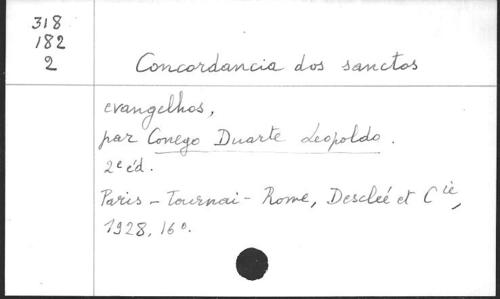 318
182
2
Concordancia dos sanctos
evangelhos,
par Conego Duarte Leopoldo.
2e éd.
Paris - Tournai - Rome, Desclée et Cie,
1928, 16°.